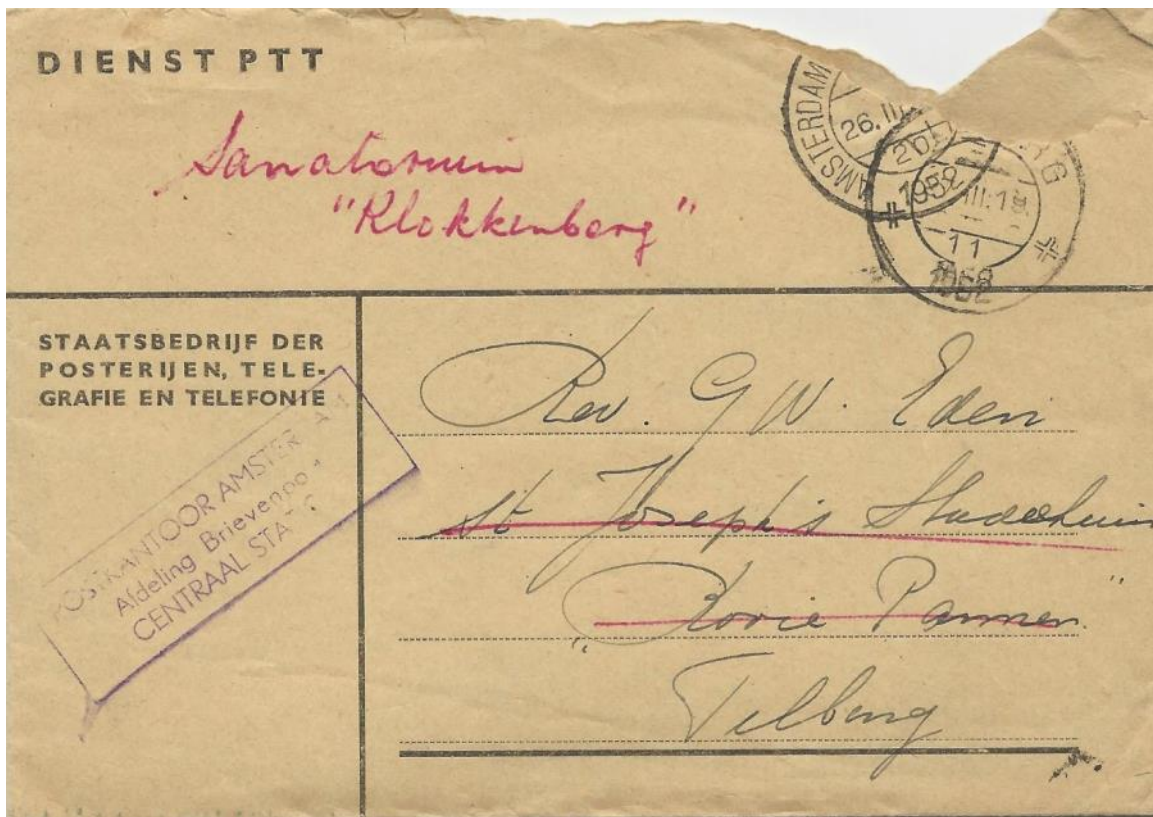 DIENST PTT
Sanatorium
"Klokkenberg"
AMSTERDAM
26.III
1952
11
1952
STAATSBEDRIJF DER
POSTERIJEN, TELE-
GRAFIE EN TELEFONIE
POSTKANTOOR AMSTER AM
Afdeling Brievenpo
CENTRAAL STA
Rev. G W. Eden
St Joseph's Studiehuis
" Rooie Pannen"
Tilburg